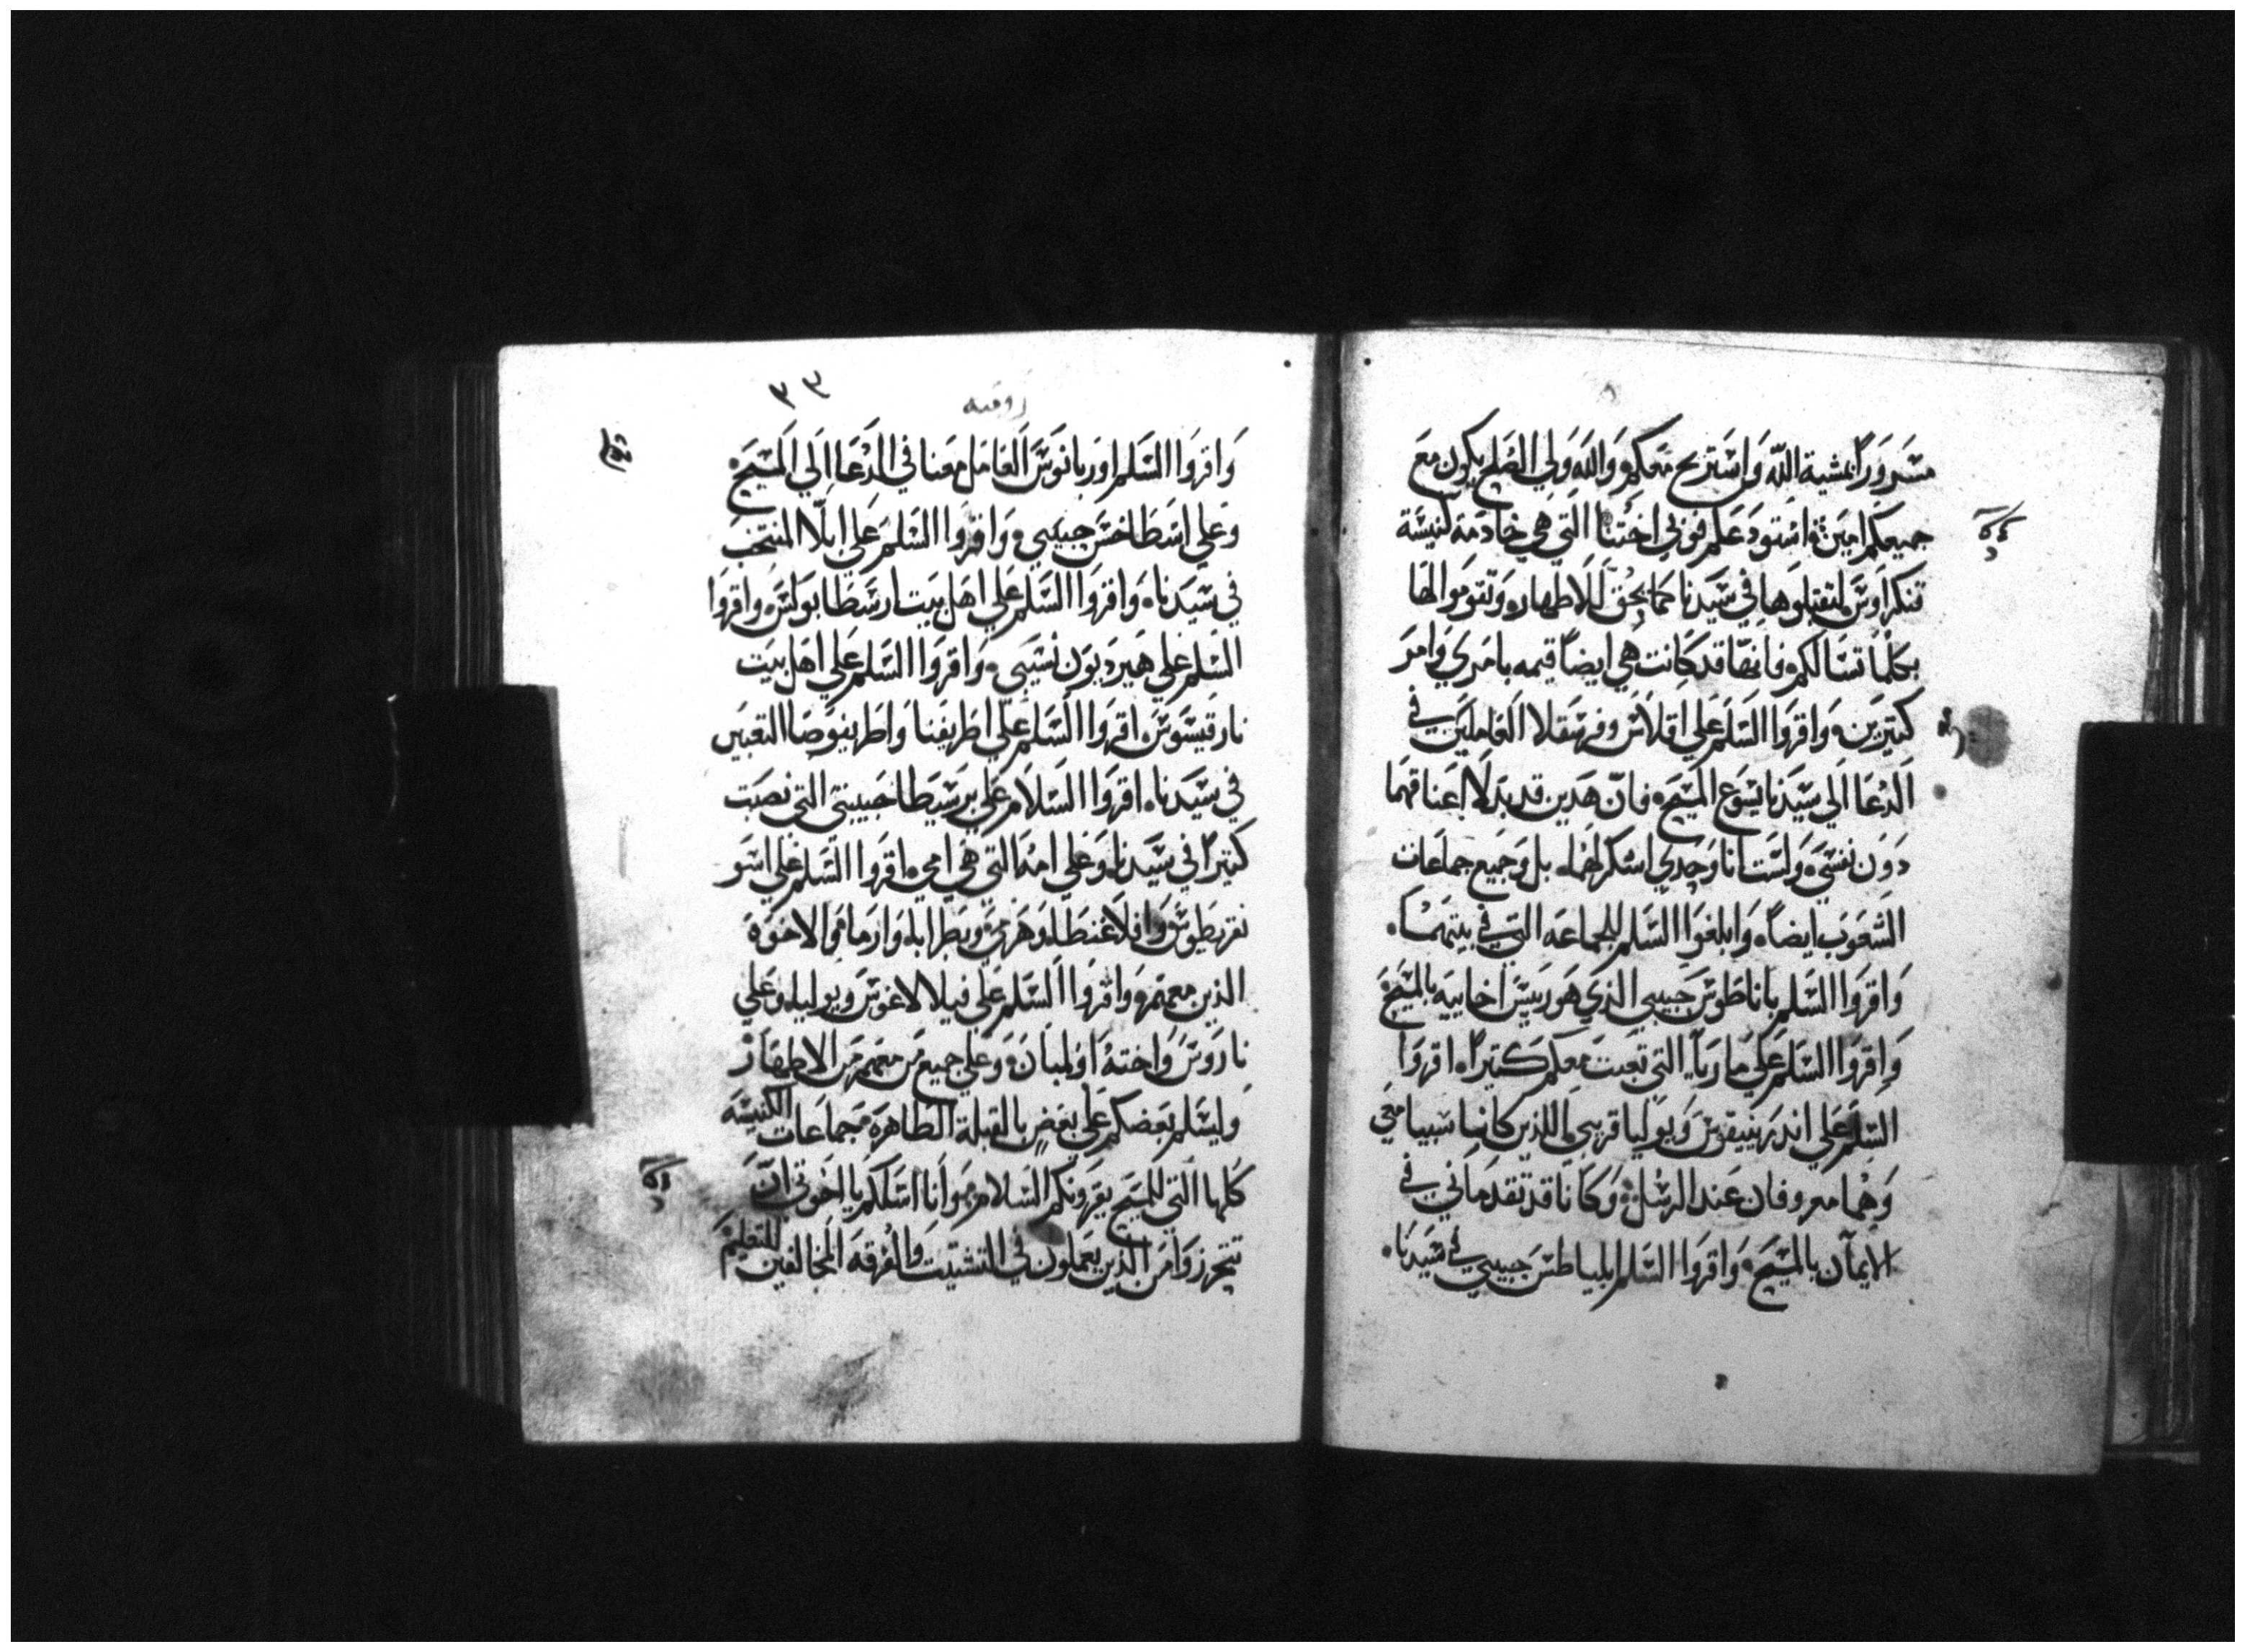 مسرورًا بمشية الله واستريح معكم والله ولي الصلح يكون مع
جميعكم امين استودعكم فوبي اختنا التي هي خادمة كنيسة
قنكراوس لتقبلوها في سيدنا كما يحق للاطهار وتقوموا لها
بكلما تسالكم فانها قد كانت هي ايضًا قيمه بامري وامر
كتيرين واقروا السلم علي اقلاس وفرسقلا العاملين في
الدعا الي سيدنا يسوع المسيح فان هدين قد بدلا اعناقهما
دون نفسي ولست انا وحدي اشكرلهما بل وجميع جماعات
الشعوب ايضًا وابلغوا السلم للجماعه التي في بيتهما
واقروا السلم باناطوس حبيبي الذي هو رييس اخاييه بالمسيح
واقروا السلم علي ماريا التي تعبت معكم كتيرًا اقروا
السلم علي اندرنيقوس ويوليا قريبي اللذين كانا سبيا معي
وهما معروفان عند الرسل وكانا قد تقدماني في
الايمان بالمسيح واقروا السلم ابلياطس حبيبي في سيدنا
٣٣
رومية
واقروا السلم اوربانوس العامل معنا في الدعا الي المسيح
وعلي اسطاخس حبيبي واقروا السلم علي ابلا المنتخب
في سيدنا واقروا السلم علي اهل بيت ارسطابولس واقروا
السلم علي هيرديون نسيبي واقروا السلم علي اهل بيت
نارقيسوس اقروا السلم علي اطريفنا واطريفوصا التعبين
في سيدنا اقروا السلام علي برسيطا حبيبتي التي نصبت
كتيرًا في سيدنا وعلي امه التي هي امي اقروا السلم علي اسو
نقريطوس وافلاغنطا وهرمي وبطرابا وارما والاخوة
الذين معهم واقروا السلم علي فيلالاغوس ويوليا وعلي
ناروس واخته اولمبان وعلي جميع من معهم من الاطهار
وليسلم بعضكم علي بعض بالقبلة الطاهره جماعات الكنيسه
كلها التي للمسيح يقرونكم السلام وانا اسلكم يا اخوتي ان
تتحرزوا من الذين يعملون في التشتيت والفرقه المخالفين للتعليم